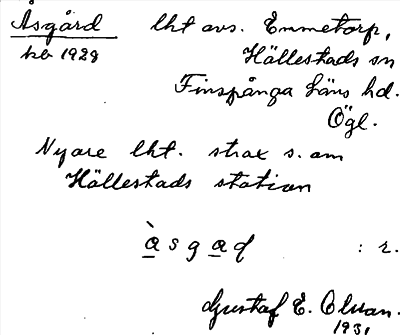 Åsgård lht avs. Emmetorp,
kb 1928 Hällestads sn
Finspånga läns hd.
Ögl.
Nyare lht. strax s. om
Hällestads station
àsgad : r.
Gustaf E. Olsson.
1931